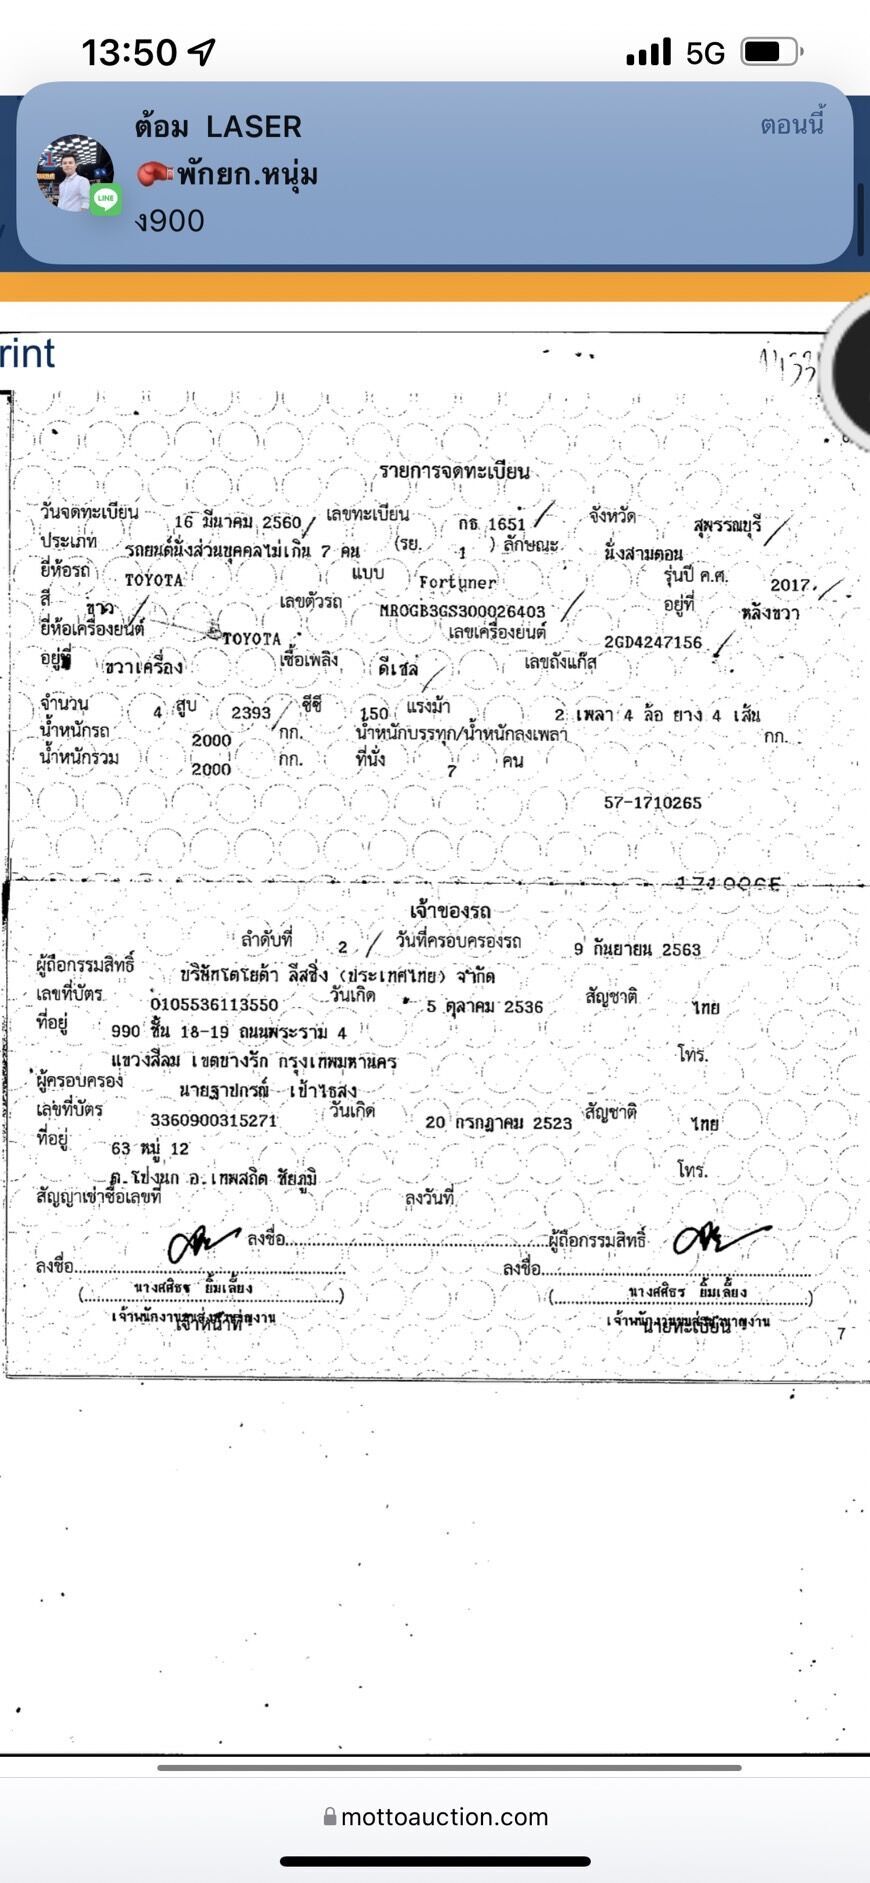 13:50
5G
ต้อม LASER
ตอนนี้
🥊พักยก.หนุ่ม
ง900
LINE
rint
รายการจดทะเบียน
วันจดทะเบียน 16 มีนาคม 2560 เลขทะเบียน กธ 1651 จังหวัด สุพรรณบุรี
ประเภท รถยนต์นั่งส่วนบุคคลไม่เกิน 7 คน (รย. 1 ) ลักษณะ นั่งสามตอน
ยี่ห้อรถ TOYOTA แบบ Fortuner รุ่นปี ค.ศ. 2017
สี ขาว เลขตัวรถ MR0GB3GS300026403 อยู่ที่ หลังขวา
ยี่ห้อเครื่องยนต์ TOYOTA เลขเครื่องยนต์ 2GD4247156
อยู่ที่ ขวาเครื่อง เชื้อเพลิง ดีเซล เลขถังแก๊ส
จำนวน 4 สูบ 2393 ซีซี 150 แรงม้า 2 เพลา 4 ล้อ ยาง 4 เส้น
น้ำหนักรถ 2000 กก. น้ำหนักบรรทุก/น้ำหนักลงเพลา กก.
น้ำหนักรวม 2000 กก. ที่นั่ง 7 คน
57-1710265
เจ้าของรถ
ลำดับที่ 2 วันที่ครอบครองรถ 9 กันยายน 2563
ผู้ถือกรรมสิทธิ์ บริษัทโตโยต้า ลีสซิ่ง (ประเทศไทย) จำกัด
เลขที่บัตร 0105536113550 วันเกิด 5 ตุลาคม 2536 สัญชาติ ไทย
ที่อยู่ 990 ชั้น 18-19 ถนนพระราม 4
แขวงสีลม เขตบางรัก กรุงเทพมหานคร โทร.
ผู้ครอบครอง นายฐาปกรณ์ เข้าไธสง
เลขที่บัตร 3360900315271 วันเกิด 20 กรกฎาคม 2523 สัญชาติ ไทย
ที่อยู่ 63 หมู่ 12
ต.โป่งนก อ.เทพสถิต ชัยภูมิ โทร.
สัญญาเช่าซื้อเลขที่ ลงวันที่
ลงชื่อ ผู้ถือกรรมสิทธิ์
ลงชื่อ ลงชื่อ
(นางศศิธร ยิ้มเลี้ยง) (นางศศิธร ยิ้มเลี้ยง)
เจ้าหน้าที่ นายทะเบียน
7
mottoauction.com